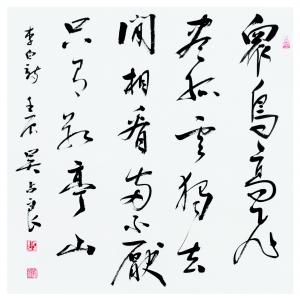 眾鳥高飛
盡孤雲獨去
閒相看兩不厭
只有敬亭山
李白詩 壬辰 吳占良